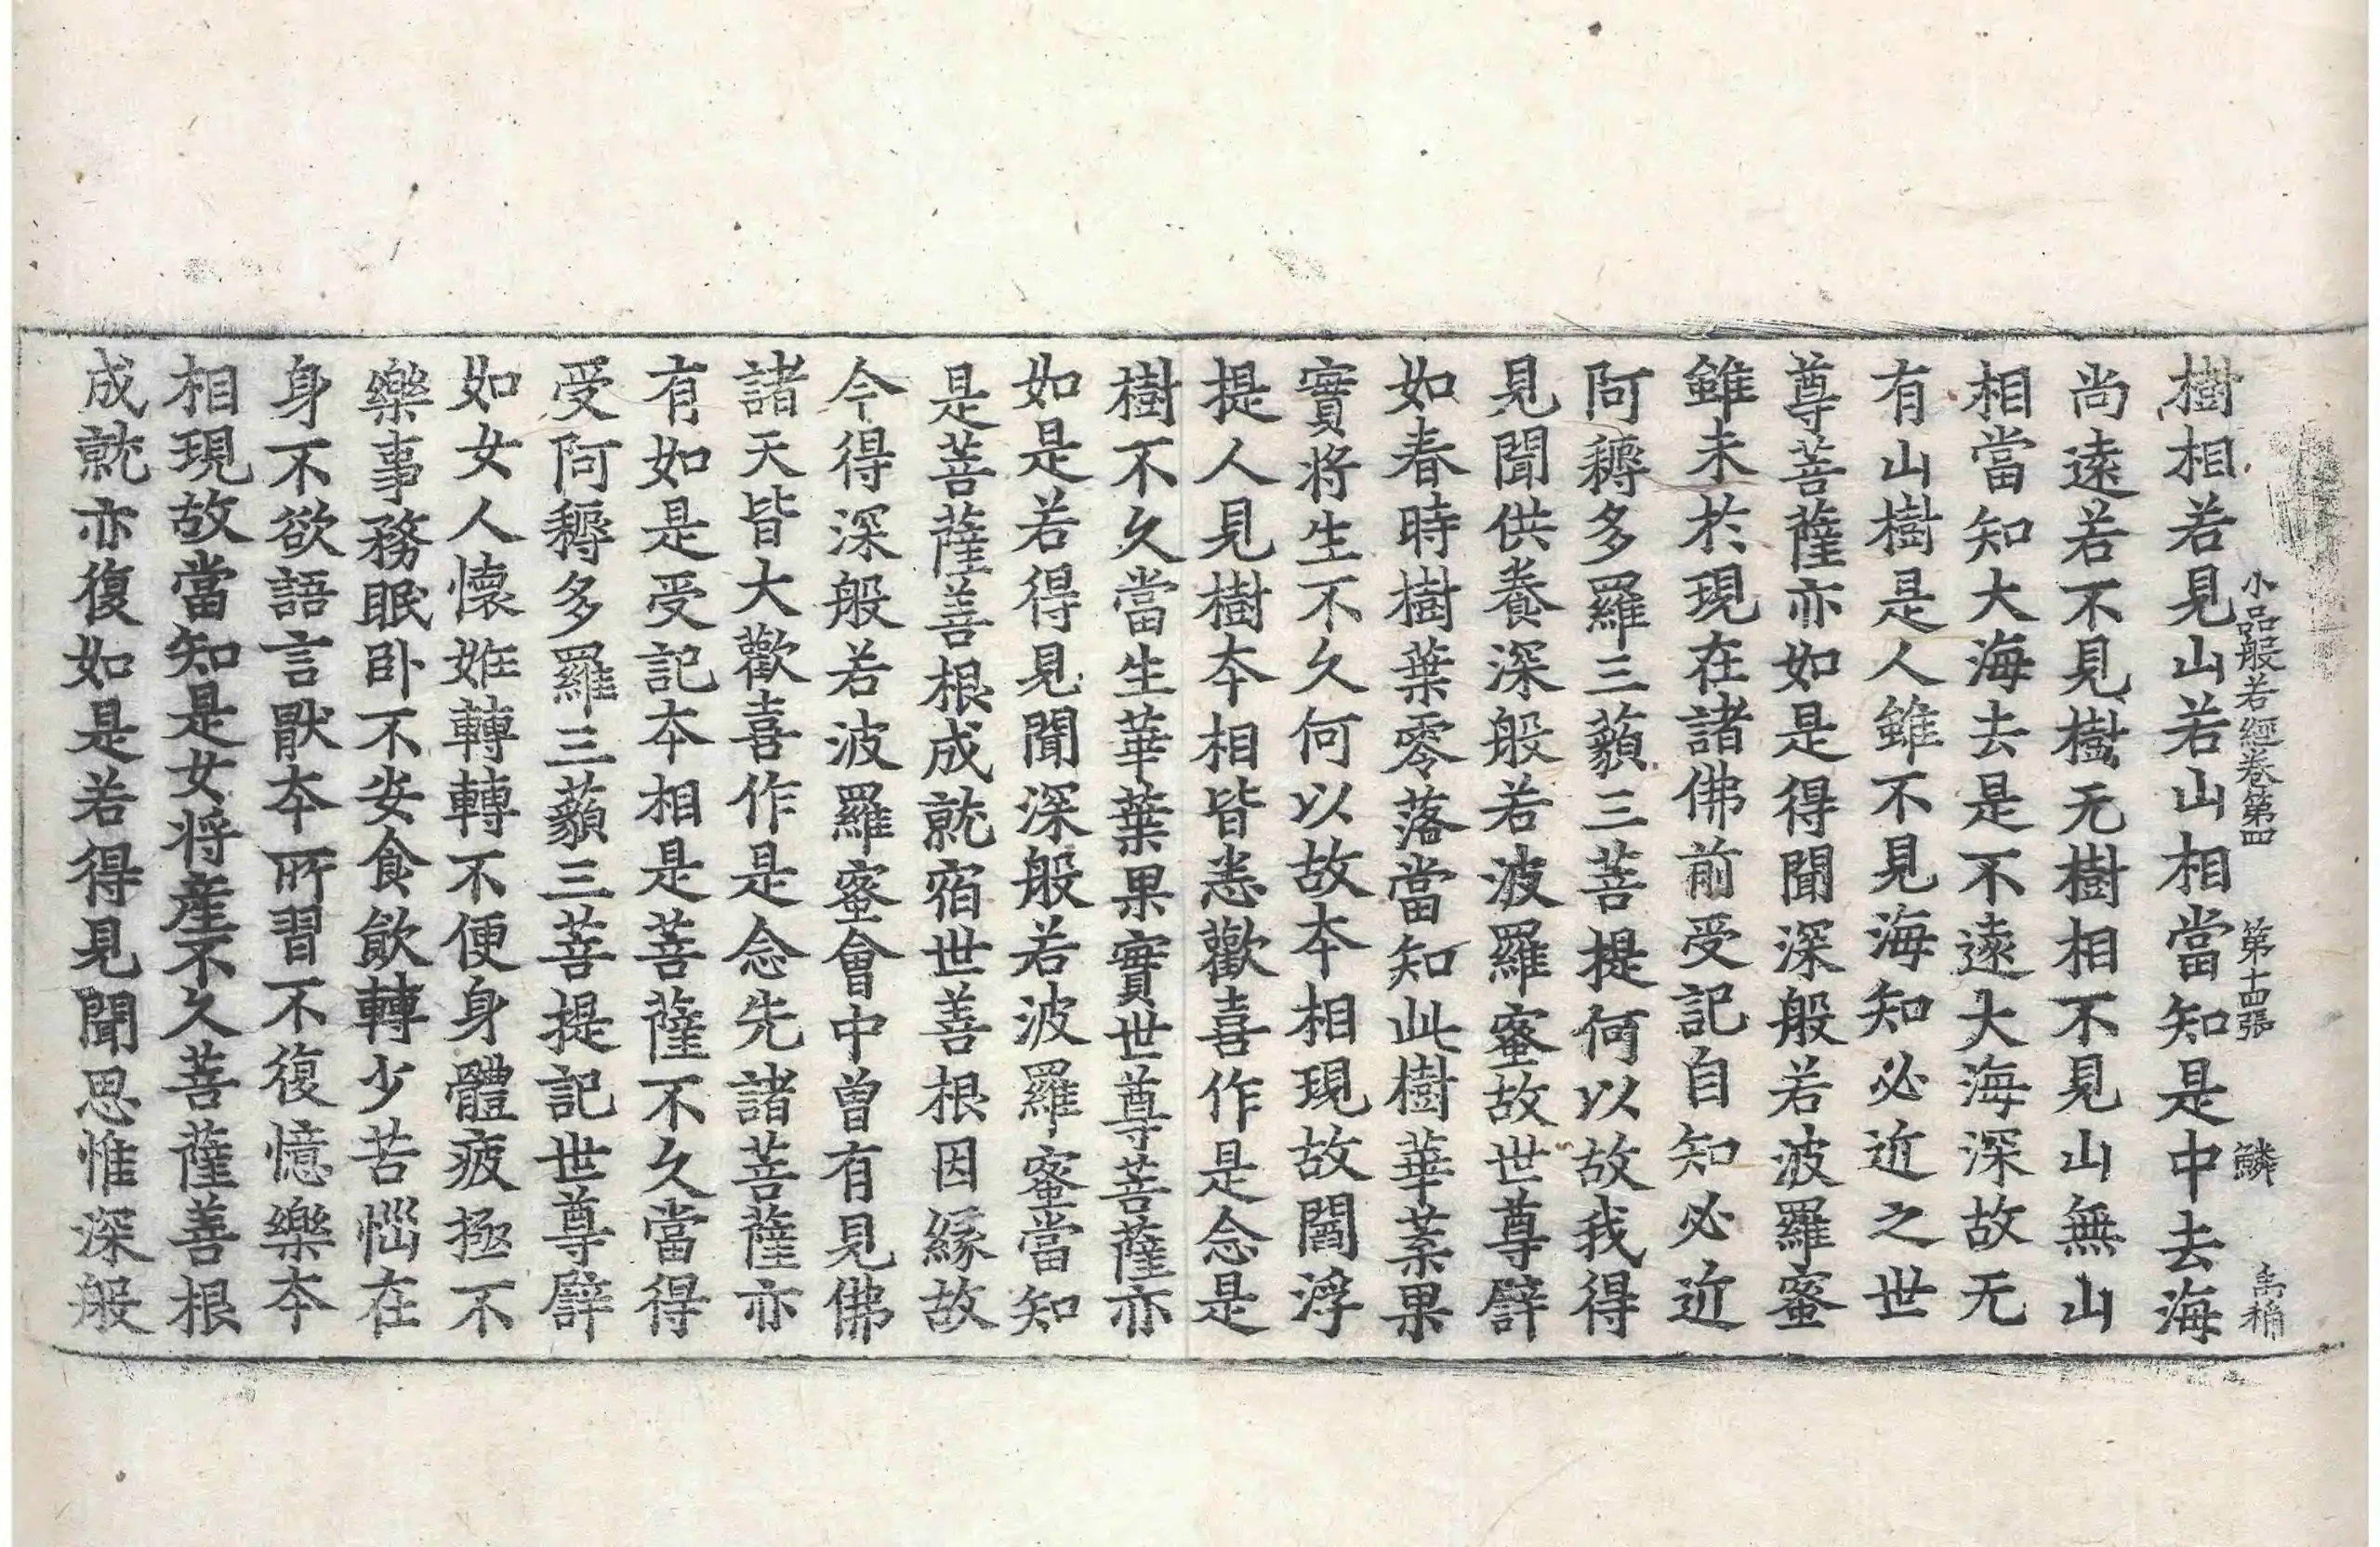 小品般若經卷第四 第十四張 鱗 禹楠
樹相若見山若山相當知是中去海
尚遠若不見樹无樹相不見山無山
相當知大海去是不遠大海深故无
有山樹是人雖不見海知必近之世
尊菩薩亦如是得聞深般若波羅蜜
雖未於現在諸佛前受記自知必近
阿耨多羅三藐三菩提何以故我得
見聞供養深般若波羅蜜故世尊譬
如春時樹葉零落當知此樹華菓果
實將生不久何以故夲相現故閻浮
提人見樹夲相皆悉歡喜作是念是
樹不久當生華葉果實世尊菩薩亦
如是若得見聞深般若波羅蜜當知
是菩薩善根成就宿世善根因緣故
今得深般若波羅蜜會中曾有見佛
諸天皆大歡喜作是念先諸菩薩亦
有如是受記夲相是菩薩不久當得
受阿耨多羅三藐三菩提記世尊譬
如女人懷姙轉轉不便身體疲極不
樂事務眠卧不安食飲轉少苦惱在
身不欲語言猒夲所習不復憶樂夲
相現故當知是女将産不久菩薩善根
成就亦復如是若得見聞思惟深般